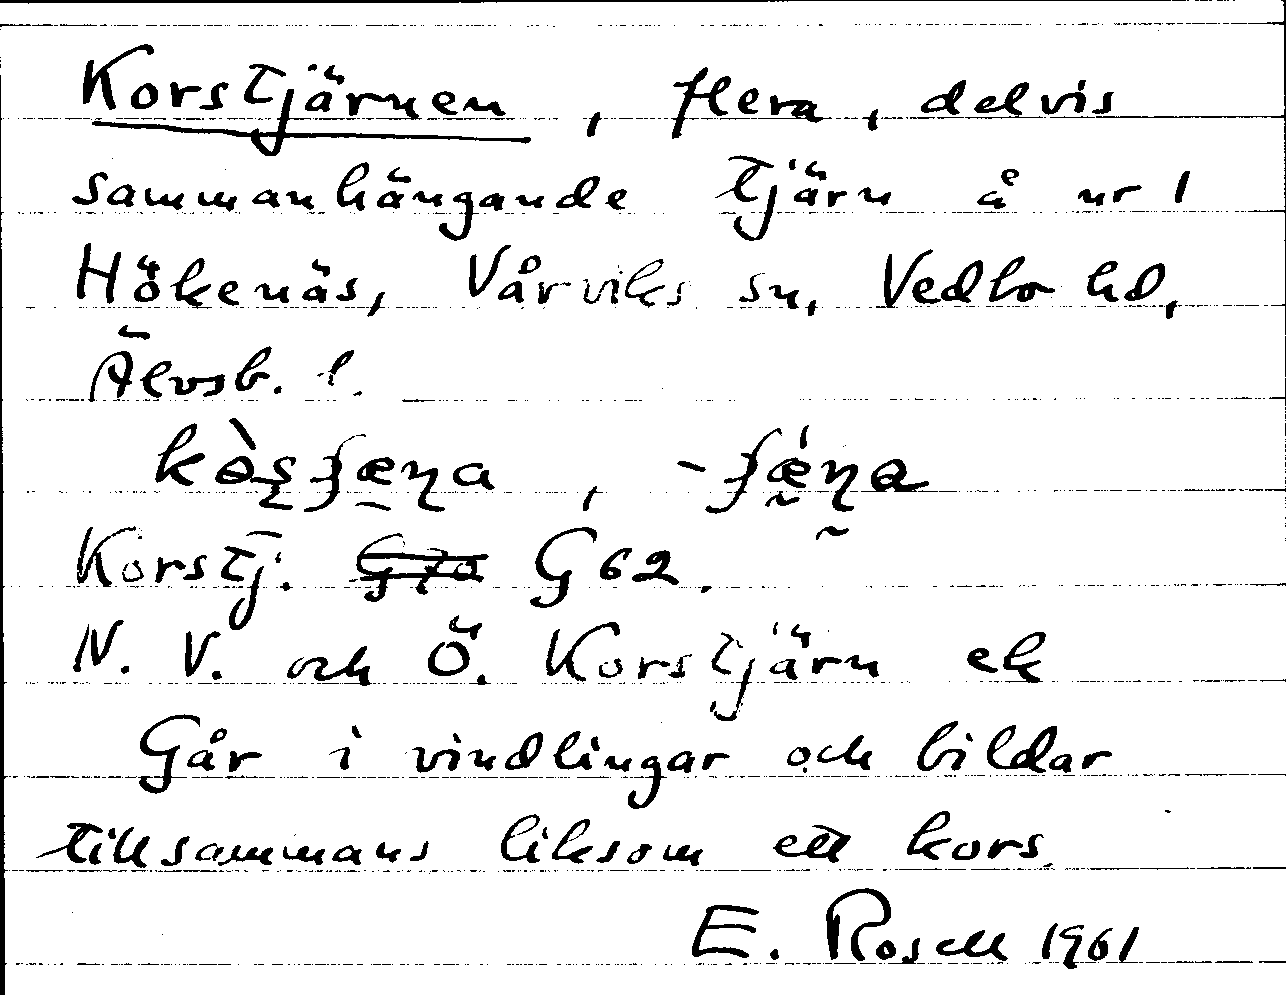 Korstjärnen, flera, delvis
sammanhängande tjärn å nr 1
Hökenäs, Vårviks sn, Vedbo hd,
Älvsb. l.
Korstj. G 62.
N. V. och Ö. Korstjärn ek
Går i vindlingar och bildar
tillsammans liksom ett kors.
E. Rosell 1961